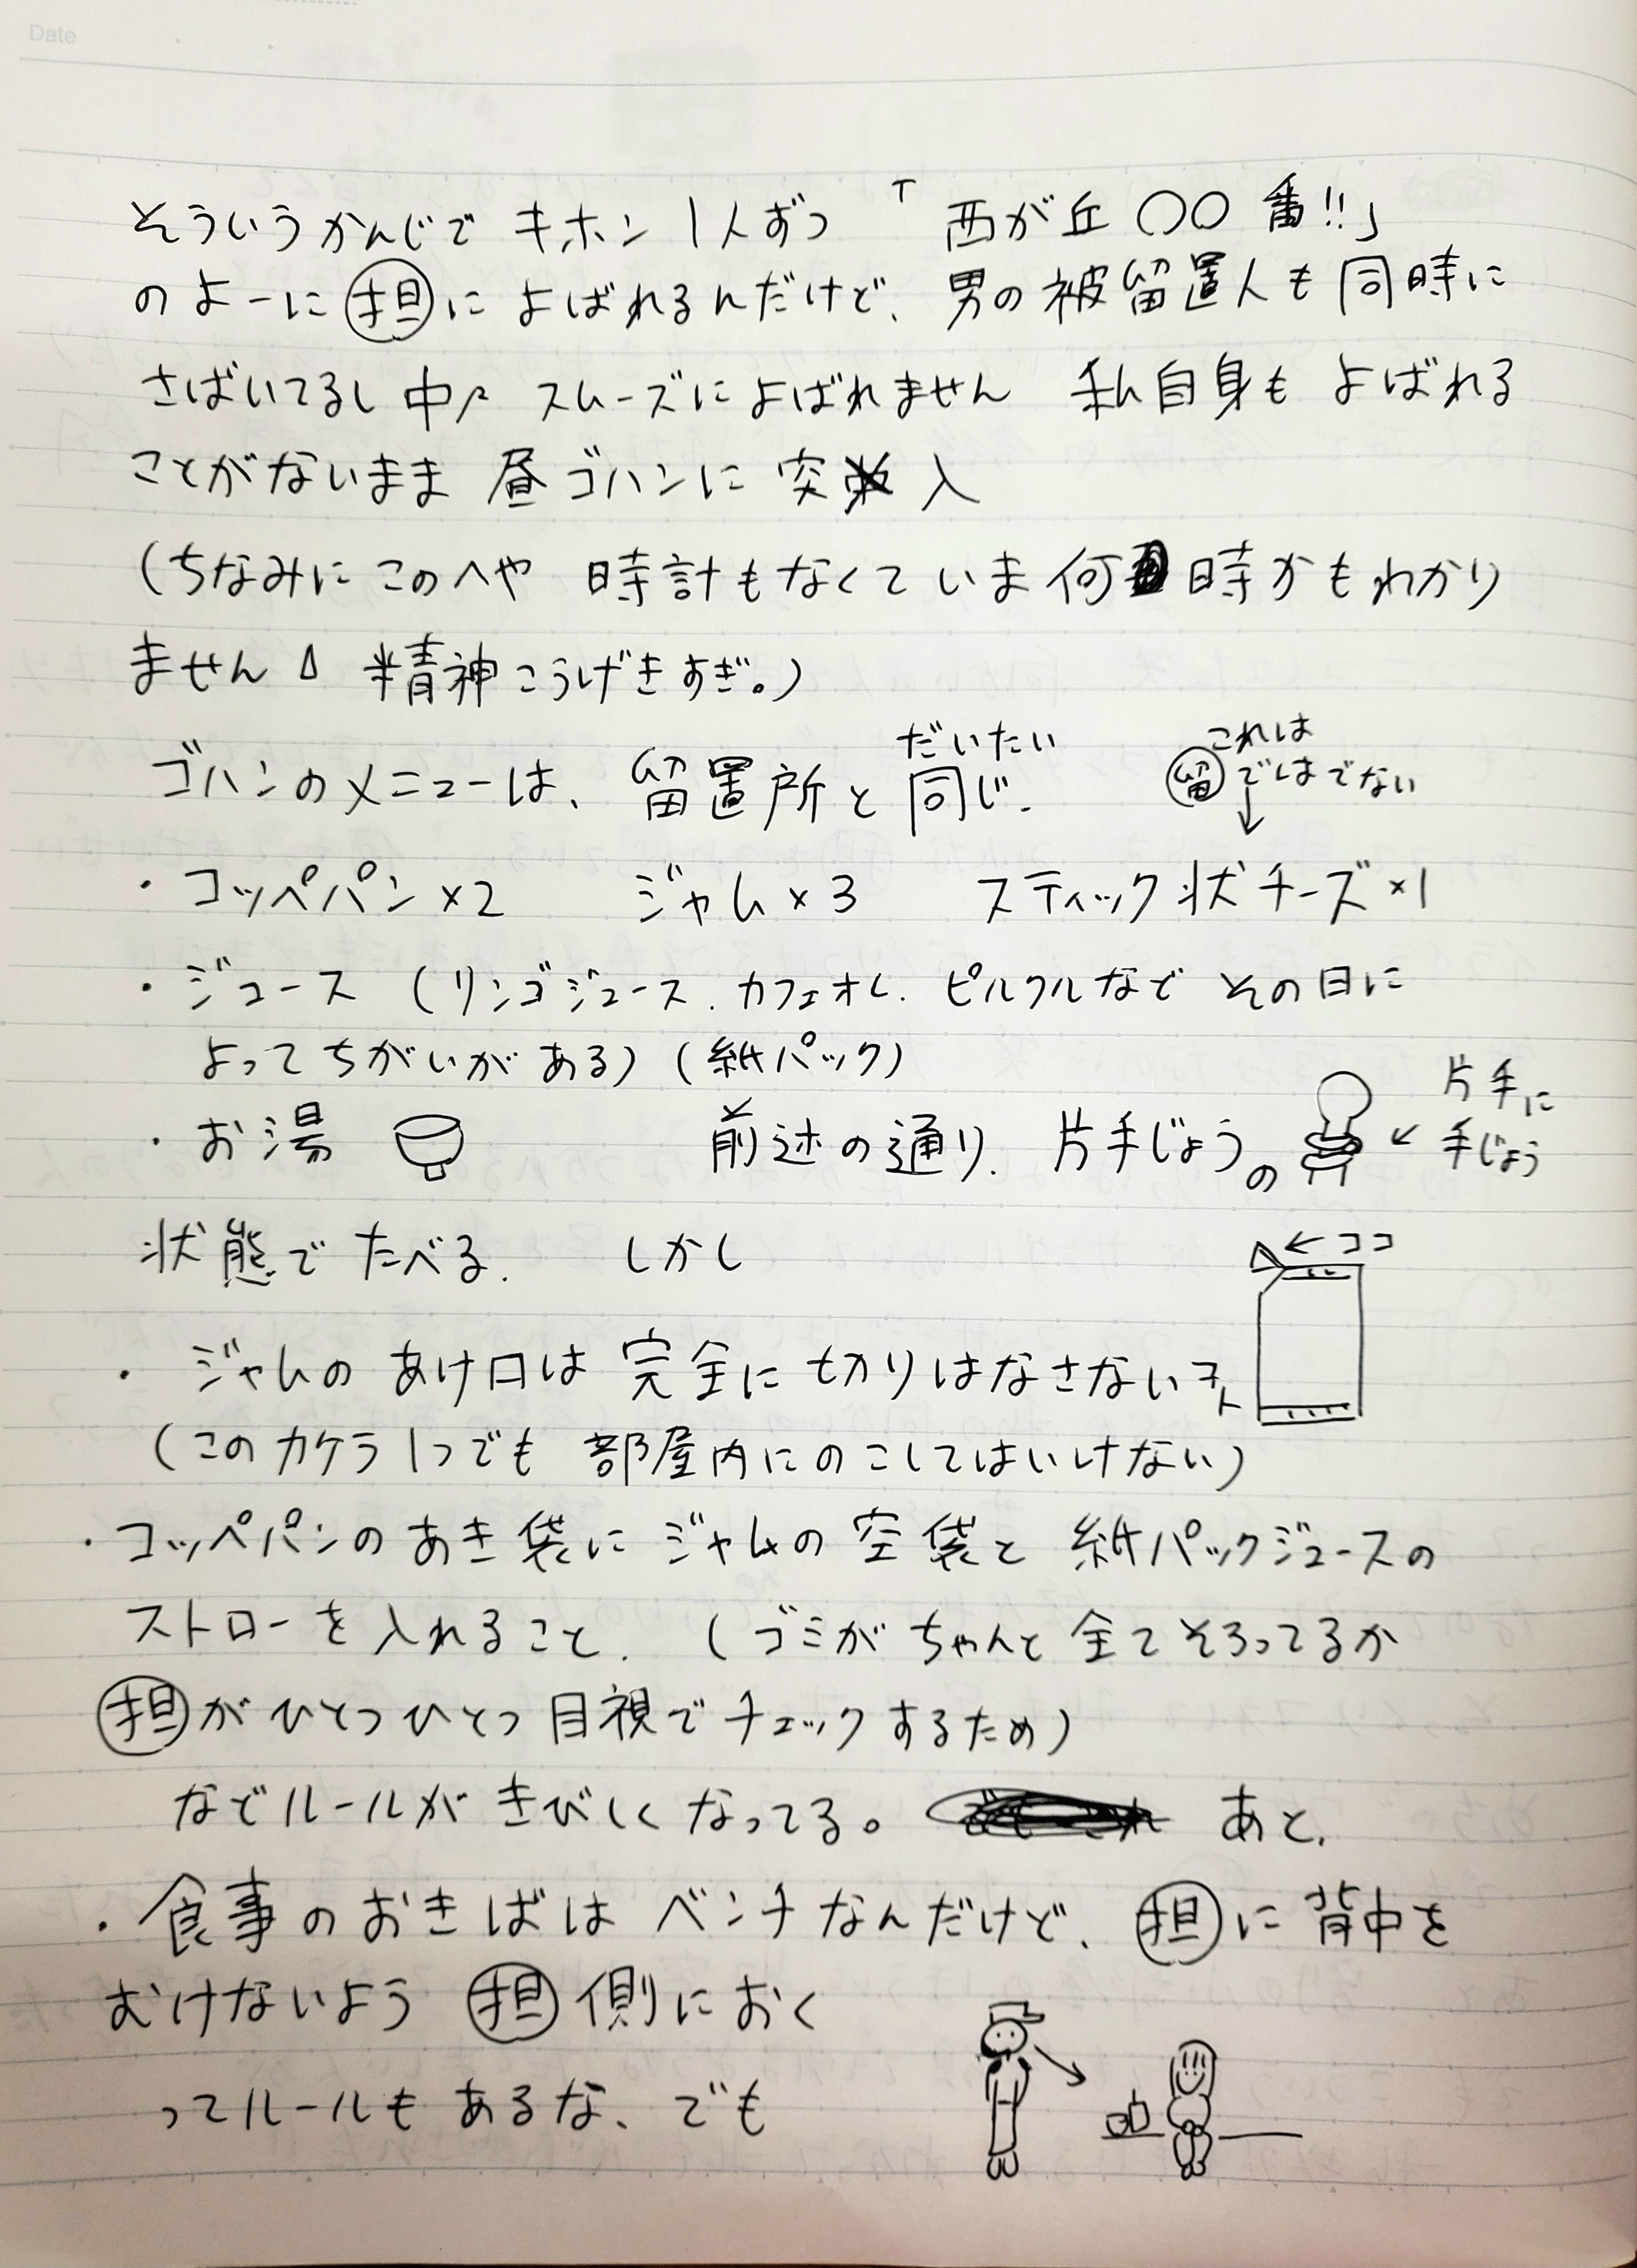 Date
そういうかんじで キホン 1人ずつ 「西が丘 〇〇 番!!」
のよーに㊟担に よばれるんだけど、男の被留置人も同時に
さばいてるし 中々 スムーズによばれません 私自身も よばれる
ことがないまま 昼ゴハンに 突入
(ちなみに このへや 時計もなくて いま何時かもわかり
ません 精神こうげきすぎ。)
ゴハンのメニューは、留置所と だいたい 同じ.
これは
留 ではでない
↓
・コッペパン×2 ジャム×3 スティック状チーズ×1
・ジュース (リンゴジュース. カフェオレ. ピルクルなど その日に
よってちがいがある) (紙パック)
・お湯 前述の通り. 片手じょうの
← 片手に
手じょう
状態でたべる. しかし
←ココ
・ジャムの あけ口は 完全に切りはなさないコト
(このカケラ1つでも 部屋内にのこしてはいけない)
・コッペパンの あき袋に ジャムの 空袋と 紙パックジュースの
ストローを入れること. (ゴミが ちゃんと 全てそろってるか
担がひとつひとつ 目視でチェックするため)
などルールが きびしくなってる。 あと.
・食事のおきばは ベンチなんだけど、担に背中を
むけないよう 担側におく
ってルールもあるな、でも